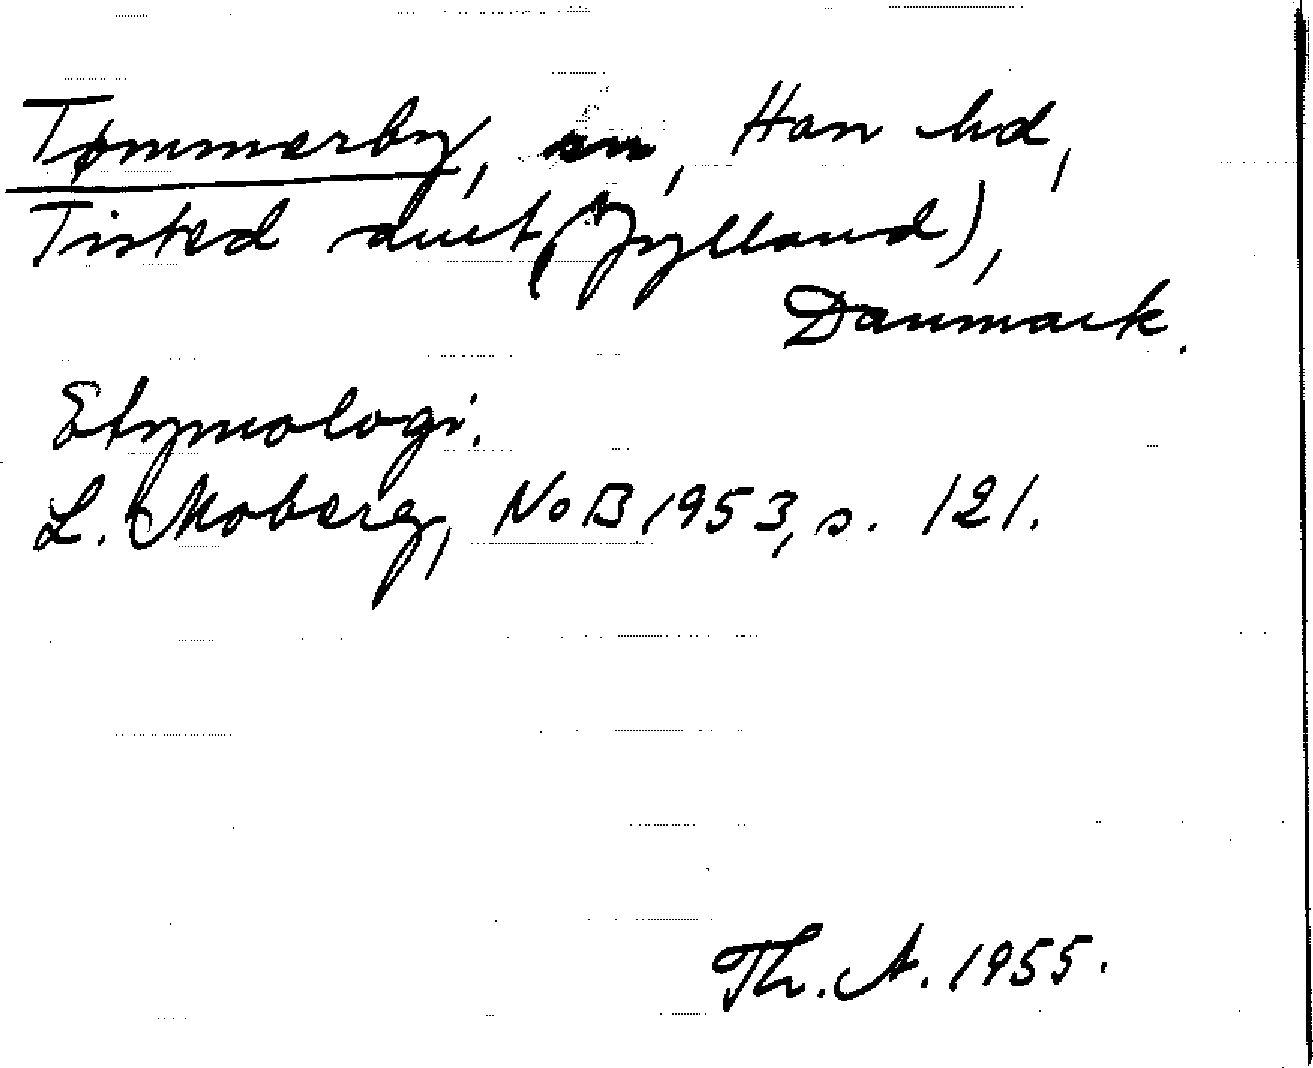 Tømmerby, sn, Han hd,
Tisted amt (Jylland),
Danmark.
Etymologi.
L. Moberg, NoB 1953, s. 121.
Th. A. 1955.